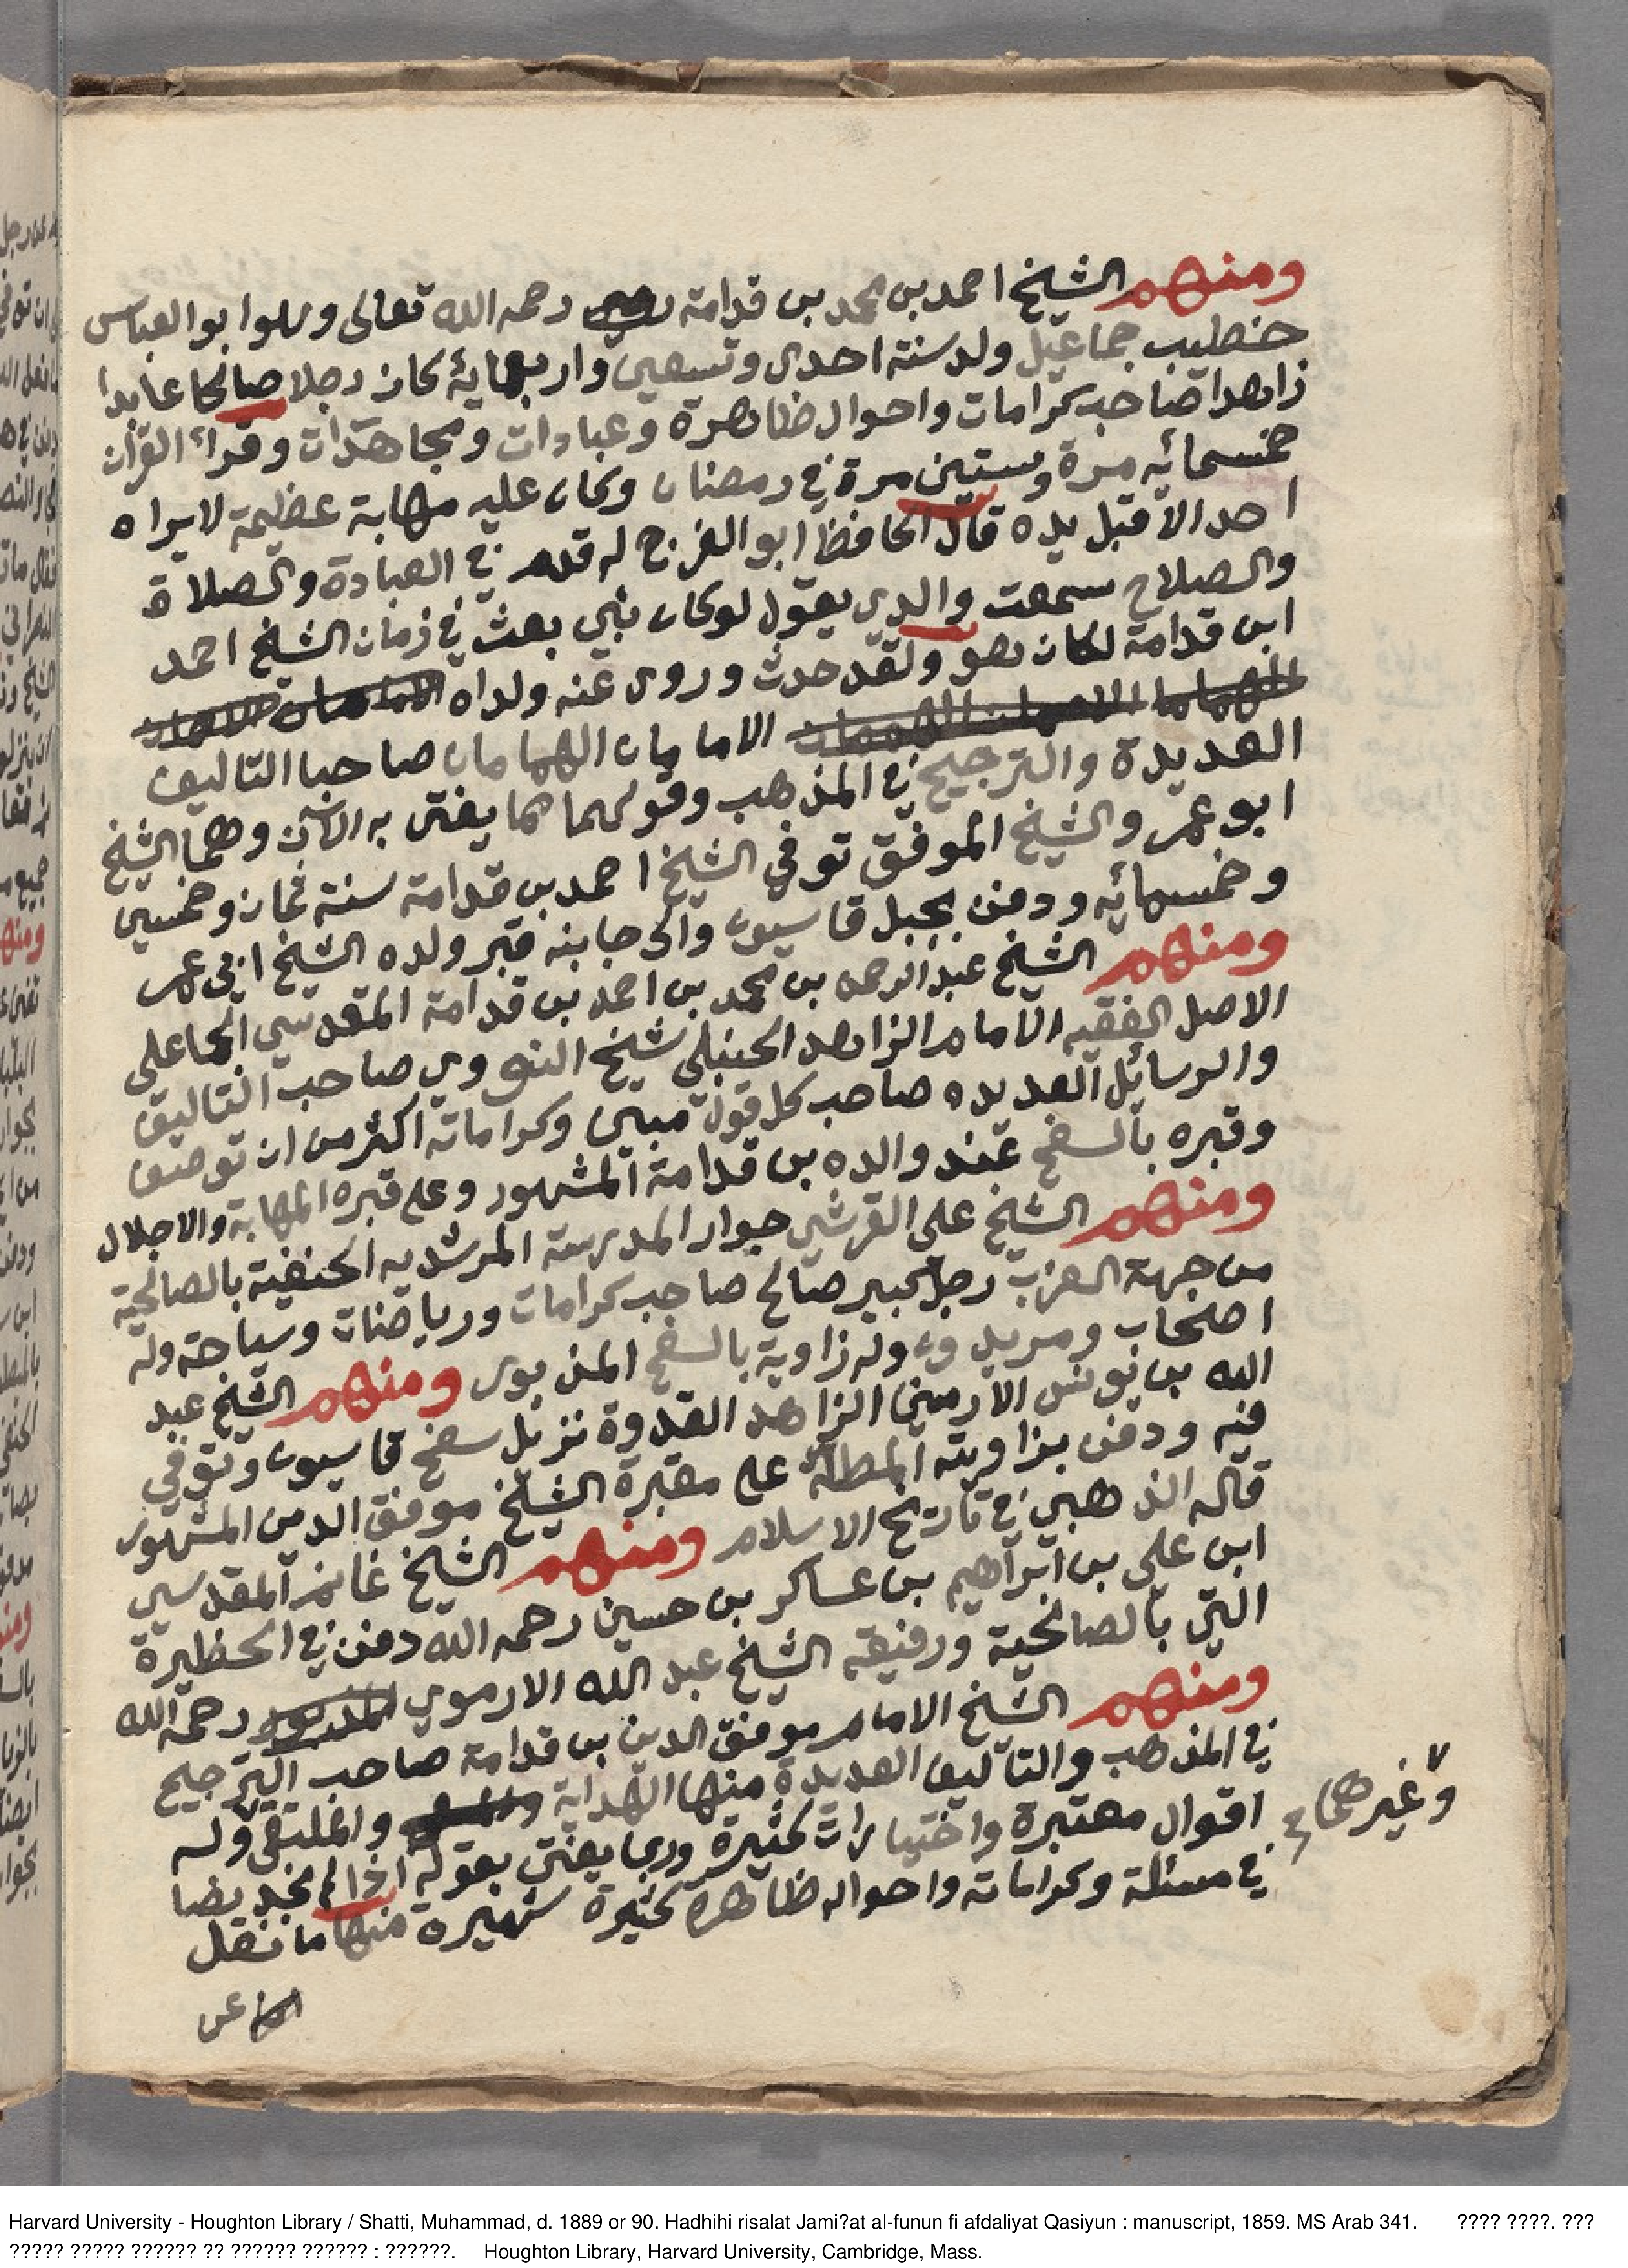 ومنهم الشيخ احمد بن محمد بن قدامة رحمه الله تعالى وهو ابو العباس
خطيب جماعيل ولد سنة احدى وتسعين واربعماية كان رجلا صالحا عابدا
زاهدا صاحب كرامات واحوال ظاهرة وعبادات ومجاهدات وقراء القرآن
خمسمائه مرة وستين مرة في رمضان وكان عليه مهابة عظيمة لا يراه
احد الا قبل يده قال الحافظ ابو الفرج له قدم في العبادة والصلاة
والصلاح سمعت والدي يقول لو كان نبي بعث في زمان الشيخ احمد
ابن قدامة لكان هو ولقد حدث وروى عنه ولداه
الامامان الهمامان صاحبا التاليف
العديدة والترجيح في المذهب وقولهما مما يفتى به الآن وهما الشيخ
ابو عمر والشيخ الموفق توفي الشيخ احمد بن قدامة سنة ثمان وخمسين
وخمسمائه ودفن بجبل قاسيون والى جابنه قبر ولده الشيخ ابي عمر
ومنهم الشيخ عبد الرحمن بن محمد بن احمد بن قدامة المقدسي الجماعلي
الاصل الفقيه الامام الزاهد الحنبلي شيخ النووي صاحب التاليق
والرسائل العديده صاحب كل قول مبين وكراماته اكثر من ان توصف
وقبره بالسفح عند والده بن قدامة المشهور وعلى قبره المهابة والاجلال
ومنهم الشيخ على القرشي جوار المدرسة المرشديه الحنفية بالصالحية
من جهة الغرب رجل كبير صالح صاحب كرامات ورياضات وسياحة وله
اصحاب ومريدون وله زاوية بالسفح المذبور ومنهم الشيخ عبد
الله بن يونس الارميني الزاهد القدوة نزيل سفح قاسيون وتوفي
فيه ودفن بزاويته المطلة على مقبرة الشيخ موفق الدين المشهور
قاله الذهبي في تاريخ الاسلام ومنهم الشيخ غانم المقدسي
ابن علي بن ابراهيم بن عساكر بن حسين رحمه الله دفن في الحظيرة
التي بالصالحية ورفيقه الشيخ عبد الله الارموي رحمه الله
ومنهم الشيخ الامام موفق الدين بن قدامة صاحب الترجيح
في المذهب والتاليف العديدة منها الهداية والملتقى وله
وغيرهما صح
اقوال معتبرة واختيارات كثيرة وربما يفتى بقوله اذا لم نجد نصا
في مسئلة وكراماته واحواله ظاهره كثيرة شهيرة منها ما نقل
عن
Harvard University - Houghton Library / Shatti, Muhammad, d. 1889 or 90. Hadhihi risalat Jami?at al-funun fi afdaliyat Qasiyun : manuscript, 1859. MS Arab 341. ???? ????. ???
????? ????? ?????? ?? ?????? ?????? : ??????. Houghton Library, Harvard University, Cambridge, Mass.